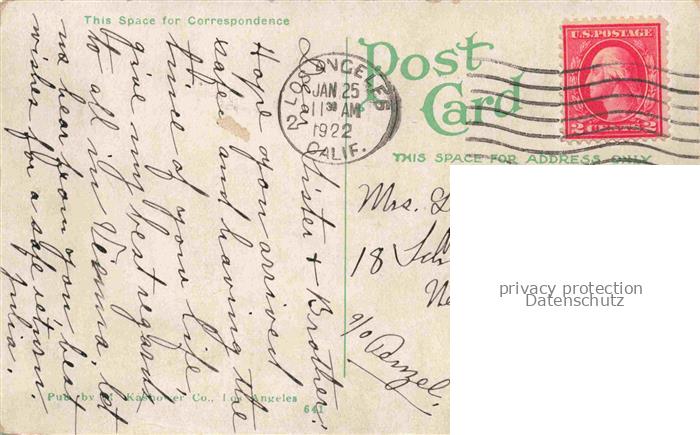 This Space for Correspondence
Dear Sister & Brother:
Hope you arrived
safe and having the
time of your life,
give my best regards
to all in Vienna, let
us hear from you, best
wishes for a safe return.
Julia.
Pub. by M. Kashower Co., Los Angeles
641
Post
Card
LOS ANGELES
JAN. 25
11 30 AM
1922
CALIF.
2
U.S. POSTAGE
2 CENTS 2
THIS SPACE FOR ADDRESS ONLY
Mrs.
18
c/o Penzel.
privacy protection
Datenschutz